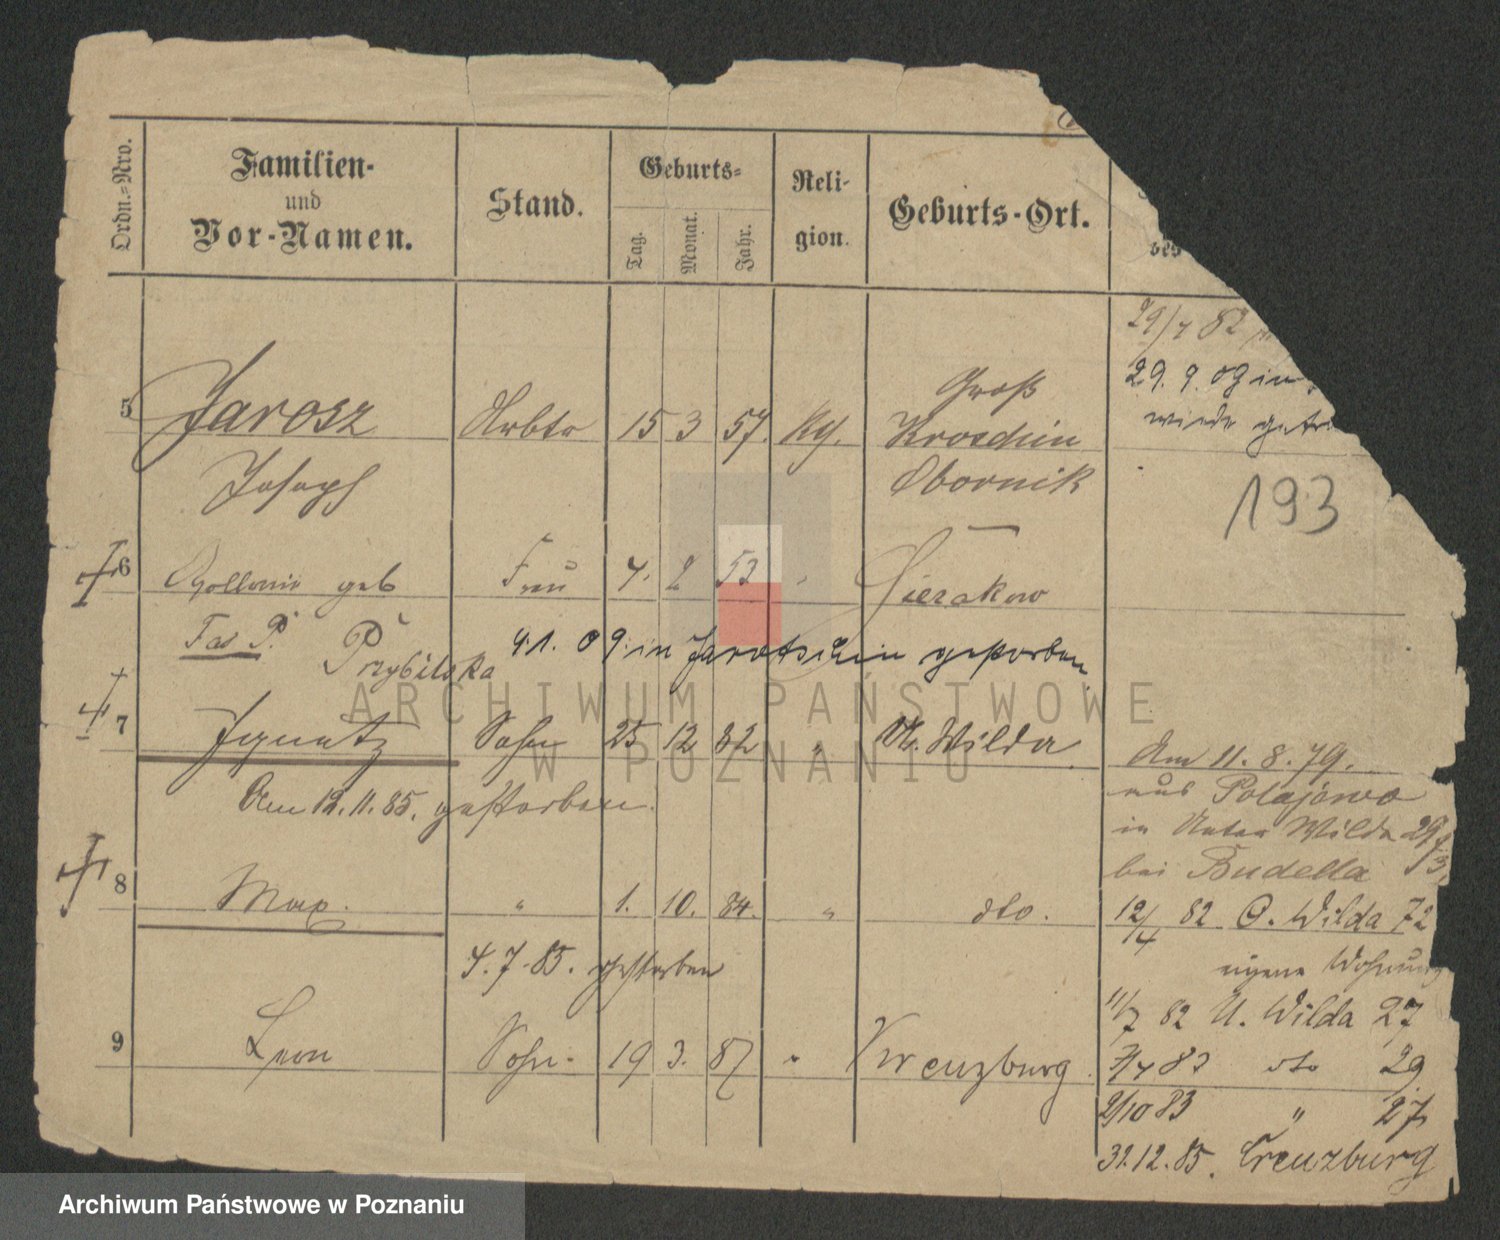 Ordn.-Nro.
Familien-
und
Vor-Namen.
Stand.
Geburts-
Tag.
Monat.
Jahr.
Reli-
gion.
Geburts-Ort.
29/7 82
29. 9. 09 in
wieder getr
5 Jarosz Arbtr 15 3 57. kth. Groß
Kroschin
Joseph Obornik
193
6 Apollonia geb Frau 7. 2 53 " Sierakow
Przybilska
4.1. 09. in Jarotschin gestorben
7 Ignatz Sohn 25 12 82 " U. Wilda
Am 12.11.85. gestorben.
Am 11. 8. 79.
aus Polajewo
in Unter Wilda 29
bei Budella
8 Max. " 1. 10. 84. " dto.
4. 7. 85. gestorben
12/4 82 O. Wilda 72
eigene Wohnung
11/7 82 U. Wilda 27
9 Leon Sohn. 19 3. 87 " Kreuzburg
7/7 83 dto 29
2/10 83 " 27
31.12.85. Creuzburg
ARCHIWUM PAŃSTWOWE
W POZNANIU
Archiwum Państwowe w Poznaniu